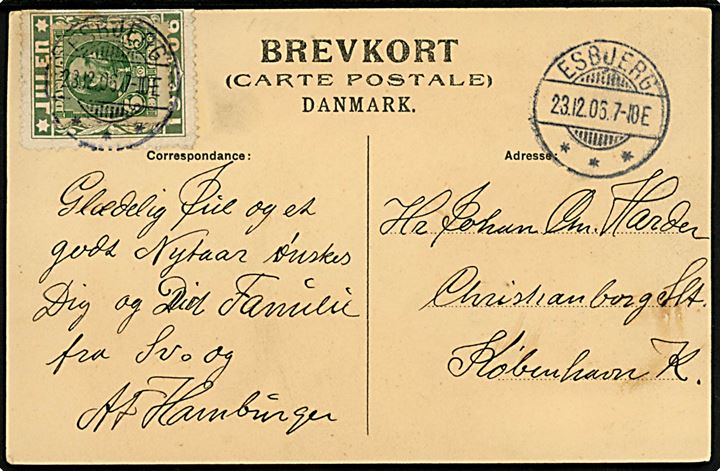 JULEN
DANMARK
BREVKORT
(CARTE POSTALE)
DANMARK.
ESBJERG
23.12.06.7-10E
Correspondance:
Adresse:
Glædelig Jul og et
godt Nytaar ønskes
Dig og Did Familie
fra Sv. og
AF Hamburger
Hr. Johan Chr. Harder
Christianborg Slt.
København K.